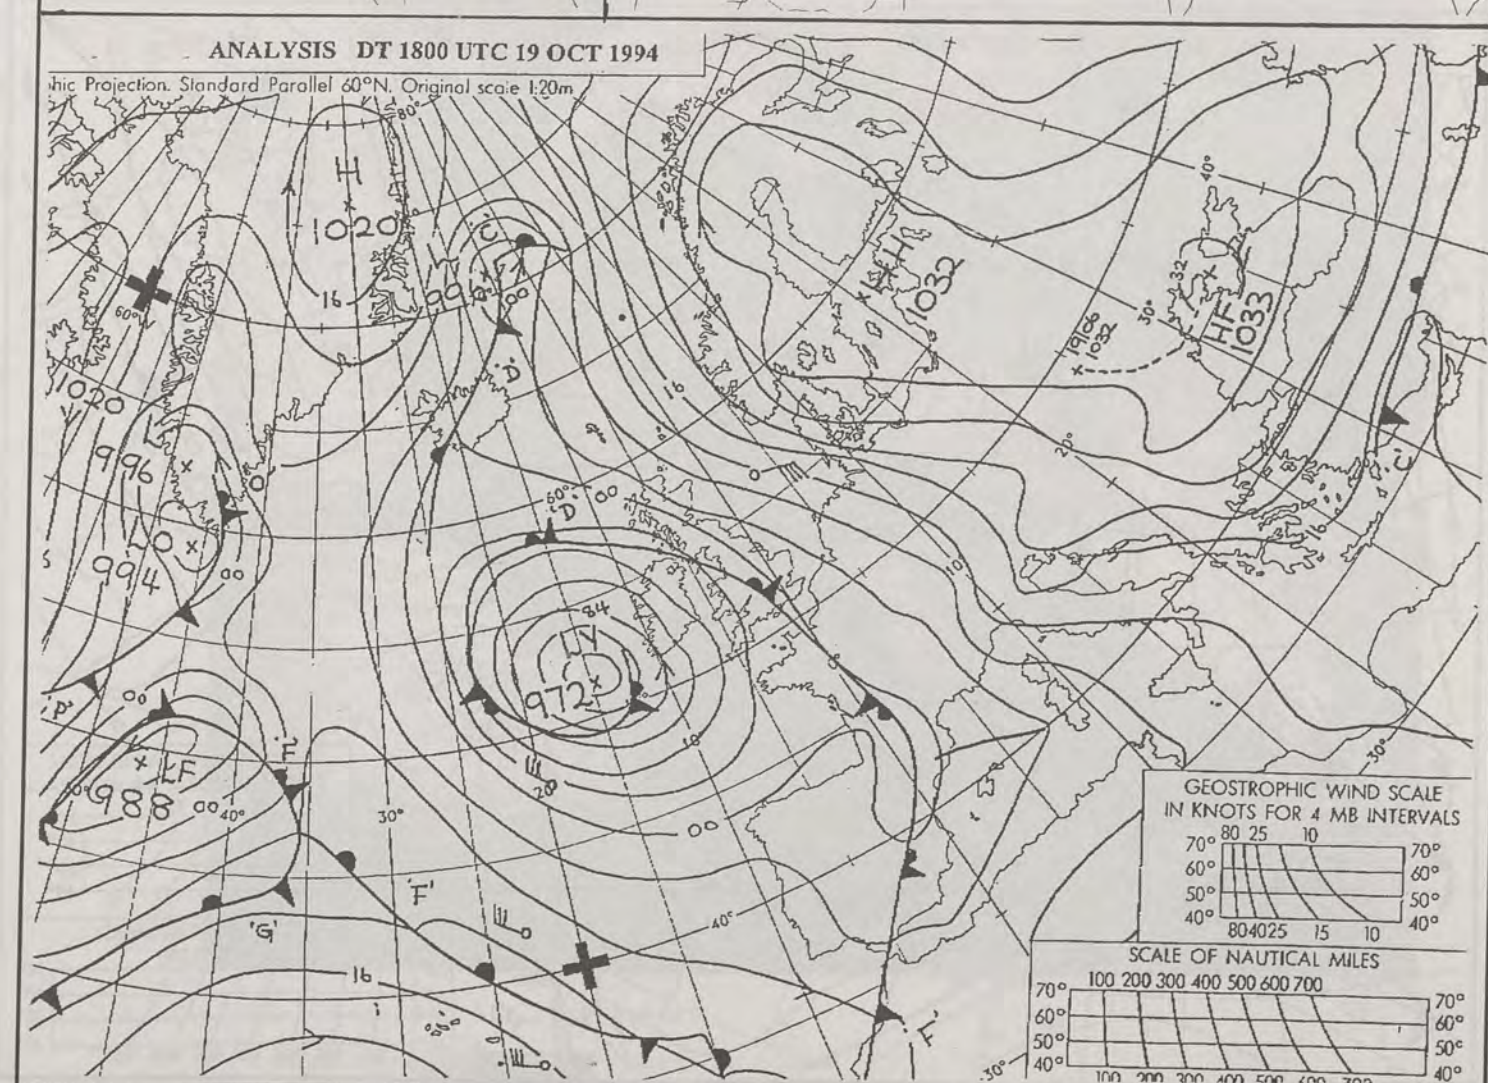 ANALYSIS DT 1800 UTC 19 OCT 1994
hic Projection. Standard Parallel 60°N. Original scale 1:20m
80°
H
1020
16
'C'
L
00
60°W
H
1032
40°
HF
1033
32
30°
1906
1032
1020
'D'
16
L
996
0
LO
994
00
20°
'C'
16
0
60°
'D'
00
10°
84
LY
972
0°
'P'
00
'F'
LF
988
00
40°
30°
20°
10°
00
30°
'F'
'G'
40°
16
'F'
30°
GEOSTROPHIC WIND SCALE
IN KNOTS FOR 4 MB INTERVALS
80 25 10
70° 70°
60° 60°
50° 50°
40° 40°
80 40 25 15 10
SCALE OF NAUTICAL MILES
100 200 300 400 500 600 700
70° 70°
60° 60°
50° 50°
40° 40°
100 200 300 400 500 600 700